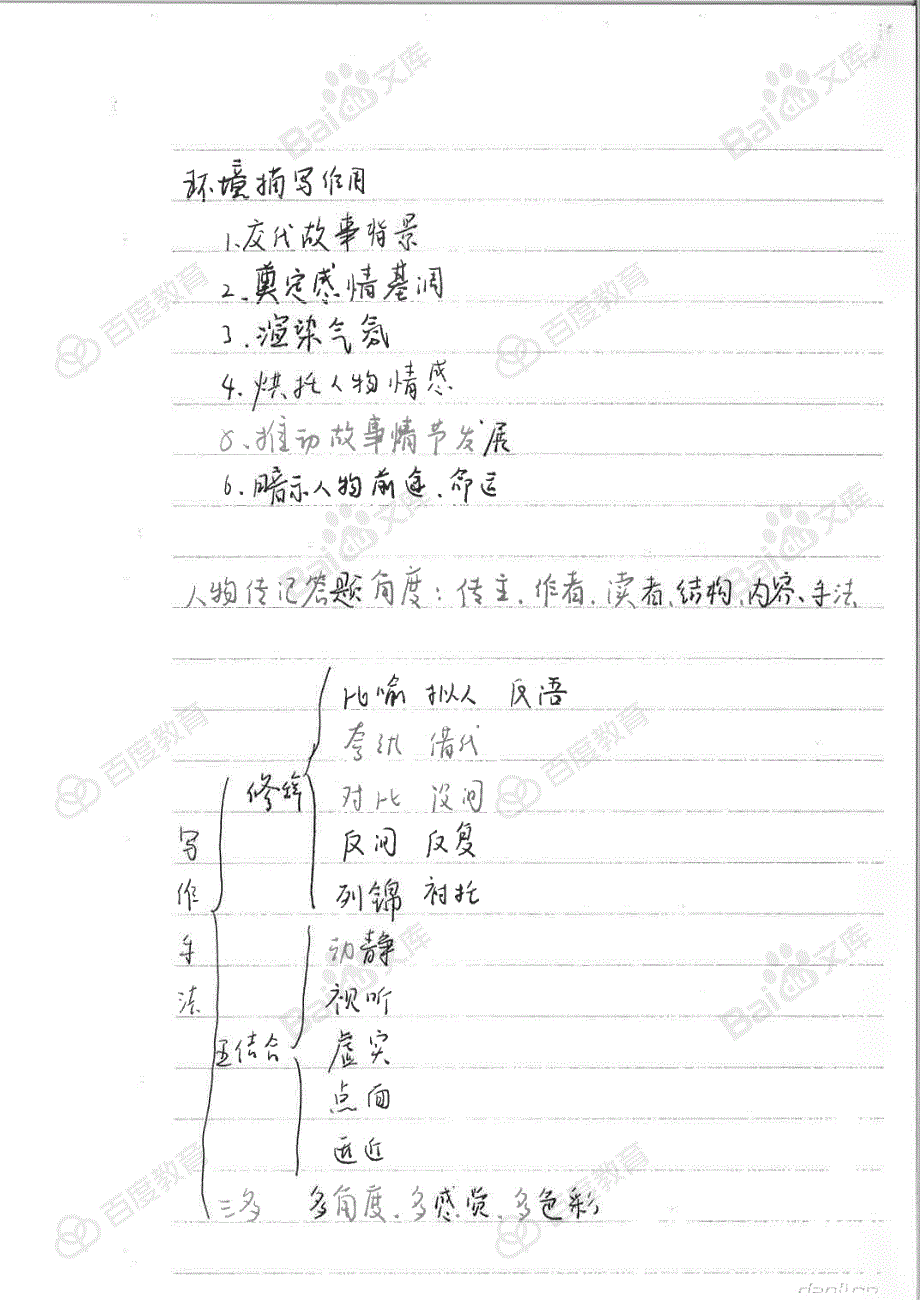 环境描写作用
1、交代故事背景
2、奠定感情基调
3、渲染气氛
4、烘托人物情感
5、推动故事情节发展
6、暗示人物前途、命运
人物传记答题角度：传主、作者、读者、结构、内容、手法
写作手法
修辞
比喻 拟人 反语
夸张 借代
对比 设问
反问 反复
列锦 衬托
五结合
动静
视听
虚实
点面
远近
三多 多角度、多感觉、多色彩
Baidu文库
百度教育